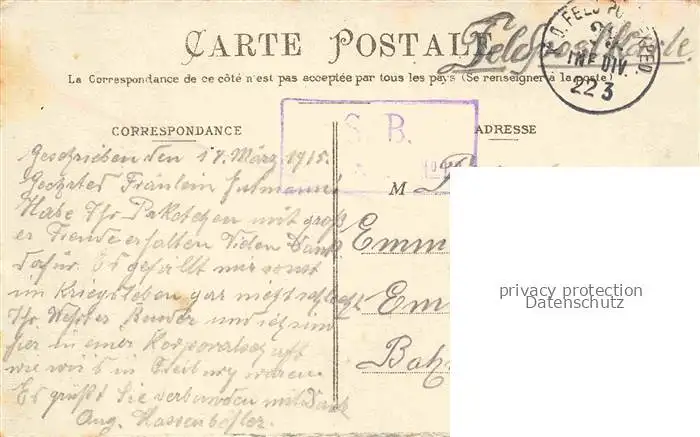 CARTE POSTALE
Feldpostkarte
K.D. FELDPOSTEXPED.
INF DIV.
22 3
La Correspondance de ce côté n'est pas acceptée par tous les pays (Se renseigner à la poste)
S. B.
CORRESPONDANCE
ADRESSE
Geschrieben den 17. März 1915.
Geehrtes Fräulein
Habe Ihr Paketchen mit groß
er Freude erhalten Vielen Dank
dafür. Es gefällt mir sonst
im Kriegsleben gar nicht schlecht
Ihr Bruder und ich sind
hier in einer Korporalschaft
wie wir's in Freiburg waren.
Es grüßt Sie verbunden mit Dank
Aug.
M
Emm
Em
Bah
privacy protection
Datenschutz